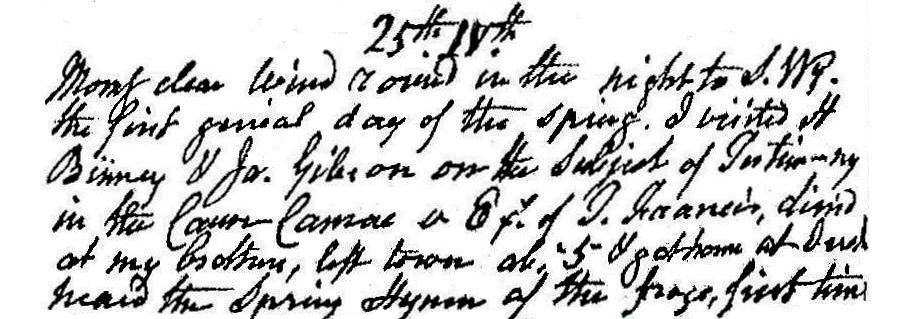 25th IVth
Morng clear Wind round in the night to S.W.
the first genial day of the spring. I visited H
Binney & Ja. Gibson on the Subject of Testimony
in the Cause Camac v Exr. of T. Francis, dined
at my brothers, left town ab. 5 & got home at dusk
heard the Spring Hymn of the frogs, first time